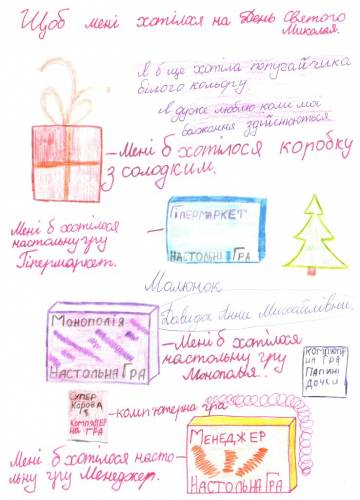 Щоб мені хотілося на День Святого
Миколая.
Я б ще хотіла папугайчика
білого кольору.
Я дуже люблю коли мої
бажання здійснюються
– Мені б хотілося коробку
з солодким.
Мені б хотілося
настольну гру
Гіпермаркет.
Гіпермаркет
Настольна Гра
Малюнок
Давидюк Анни Михайлівни.
Монополія
Настольна Гра
– Мені б хотілося
настольну гру
Монополія.
Компютер
на гра
Папині
дочки
Супер
Корова
Компютер
на гра
– комп'ютерна гра
Мені б хотілося насто-
льну гру Менеджер.
Менеджер
Настольна Гра